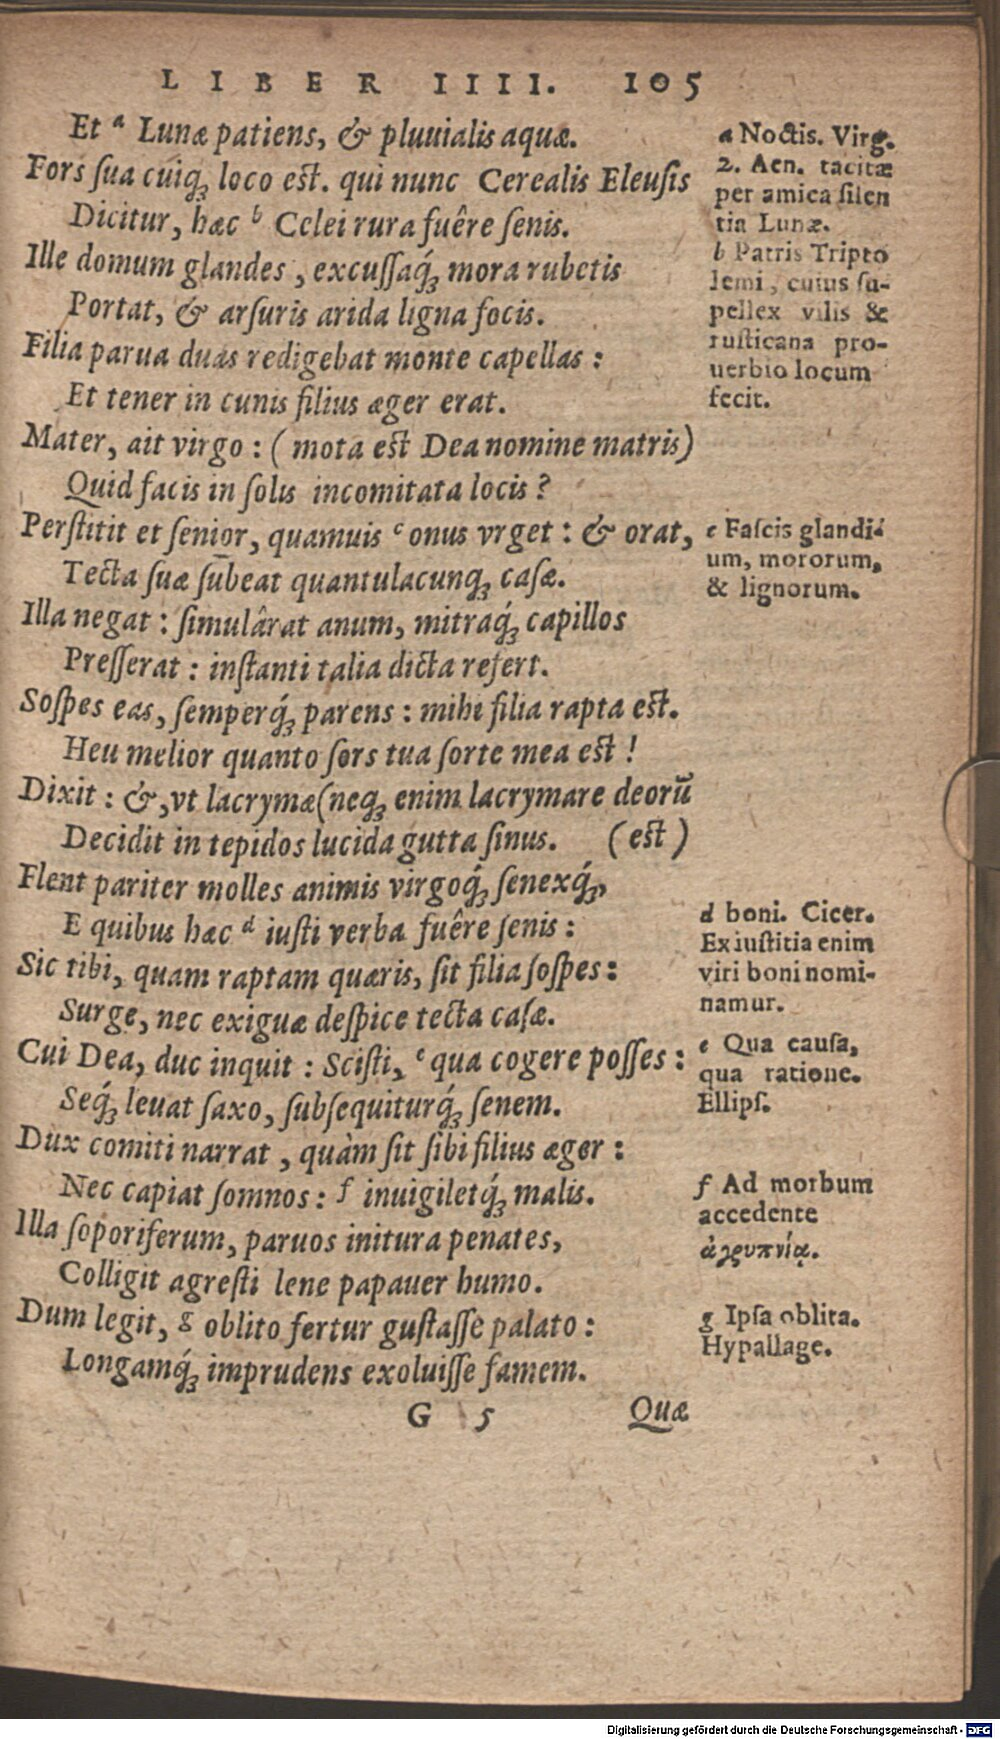 LIBER IIII. 105
Et ᵃ Lunæ patiens, & pluuialis aquæ.
Fors ſua cuiq́ꝫ loco eſt. qui nunc Cerealis Eleuſis
Dicitur, hæc ᵇ Celei rura fuêre ſenis.
Ille domum glandes, excuſſaq́ꝫ mora rubetis
Portat, & arſuris arida ligna focis.
Filia parua duas redigebat monte capellas:
Et tener in cunis filius æger erat.
Mater, ait virgo: (mota eſt Dea nomine matris)
Quid facis in ſolis incomitata locis?
Perſtitit et ſenior, quamuis ᶜ onus vrget: & orat,
Tecta ſuæ ſubeat quantulacunqꝫ caſæ.
Illa negat: ſimulârat anum, mitraq́ꝫ capillos
Preſſerat: inſtanti talia dicta refert.
Soſpes eas, ſemperq́ꝫ parens: mihi filia rapta eſt.
Heu melior quanto ſors tua ſorte mea eſt!
Dixit: &, vt lacrymæ (neqꝫ enim lacrymare deorū
Decidit in tepidos lucida gutta ſinus. (eſt)
Flent pariter molles animis virgoq́ꝫ ſenexq́ꝫ,
E quibus hæc ᵈ iuſti verba fuêre ſenis:
Sic tibi, quam raptam quæris, ſit filia ſoſpes:
Surge, nec exiguæ deſpice tecta caſæ.
Cui Dea, duc inquit: Sciſti, ᵉ qua cogere poſſes:
Seq́ꝫ leuat ſaxo, ſubſequiturq́ꝫ ſenem.
Dux comiti narrat, quàm ſit ſibi filius æger:
Nec capiat ſomnos: ᶠ inuigiletq́ꝫ malis.
Illa ſoporiferum, paruos initura penates,
Colligit agreſti lene papauer humo.
Dum legit, ᵍ oblito fertur guſtaſſe palato:
Longamq́ꝫ imprudens exoluiſſe famem.
G 5 Quæ
a Noctis. Virg.
2. Aen. tacitæ
per amica ſilen
tia Lunæ.
b Patris Tripto
lemi, cuius ſu-
pellex vilis &
ruſticana pro-
uerbio locum
fecit.
c Faſcis glandi-
um, mororum,
& lignorum.
d boni. Cicer.
Ex iuſtitia enim
viri boni nomi-
namur.
e Qua cauſa,
qua ratione.
Ellipſ.
f Ad morbum
accedente
ἀγρυπνίᾳ.
g Ipſa oblita.
Hypallage.
Digitalisierung gefördert durch die Deutsche Forschungsgemeinschaft - DFG